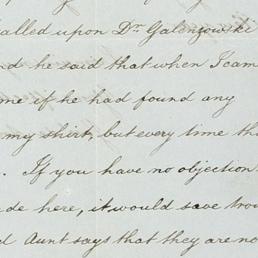 called upon Dr. Galenzowski
and he said that when I cam
me if he had found any
my shirt, but every time th
. If you have no objection
de here, it would save trou
d Aunt says that they are no